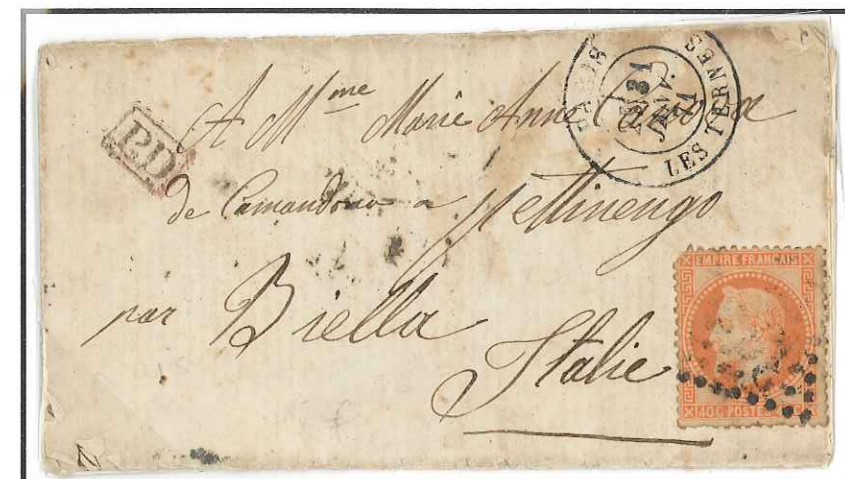 PARIS
LES TERNES
31
JANV.
71
P.D
A Mme Marie Anne
de Camandona a Pettinengo
par Biella
Italie
EMPIRE FRANÇAIS
40 C POSTES